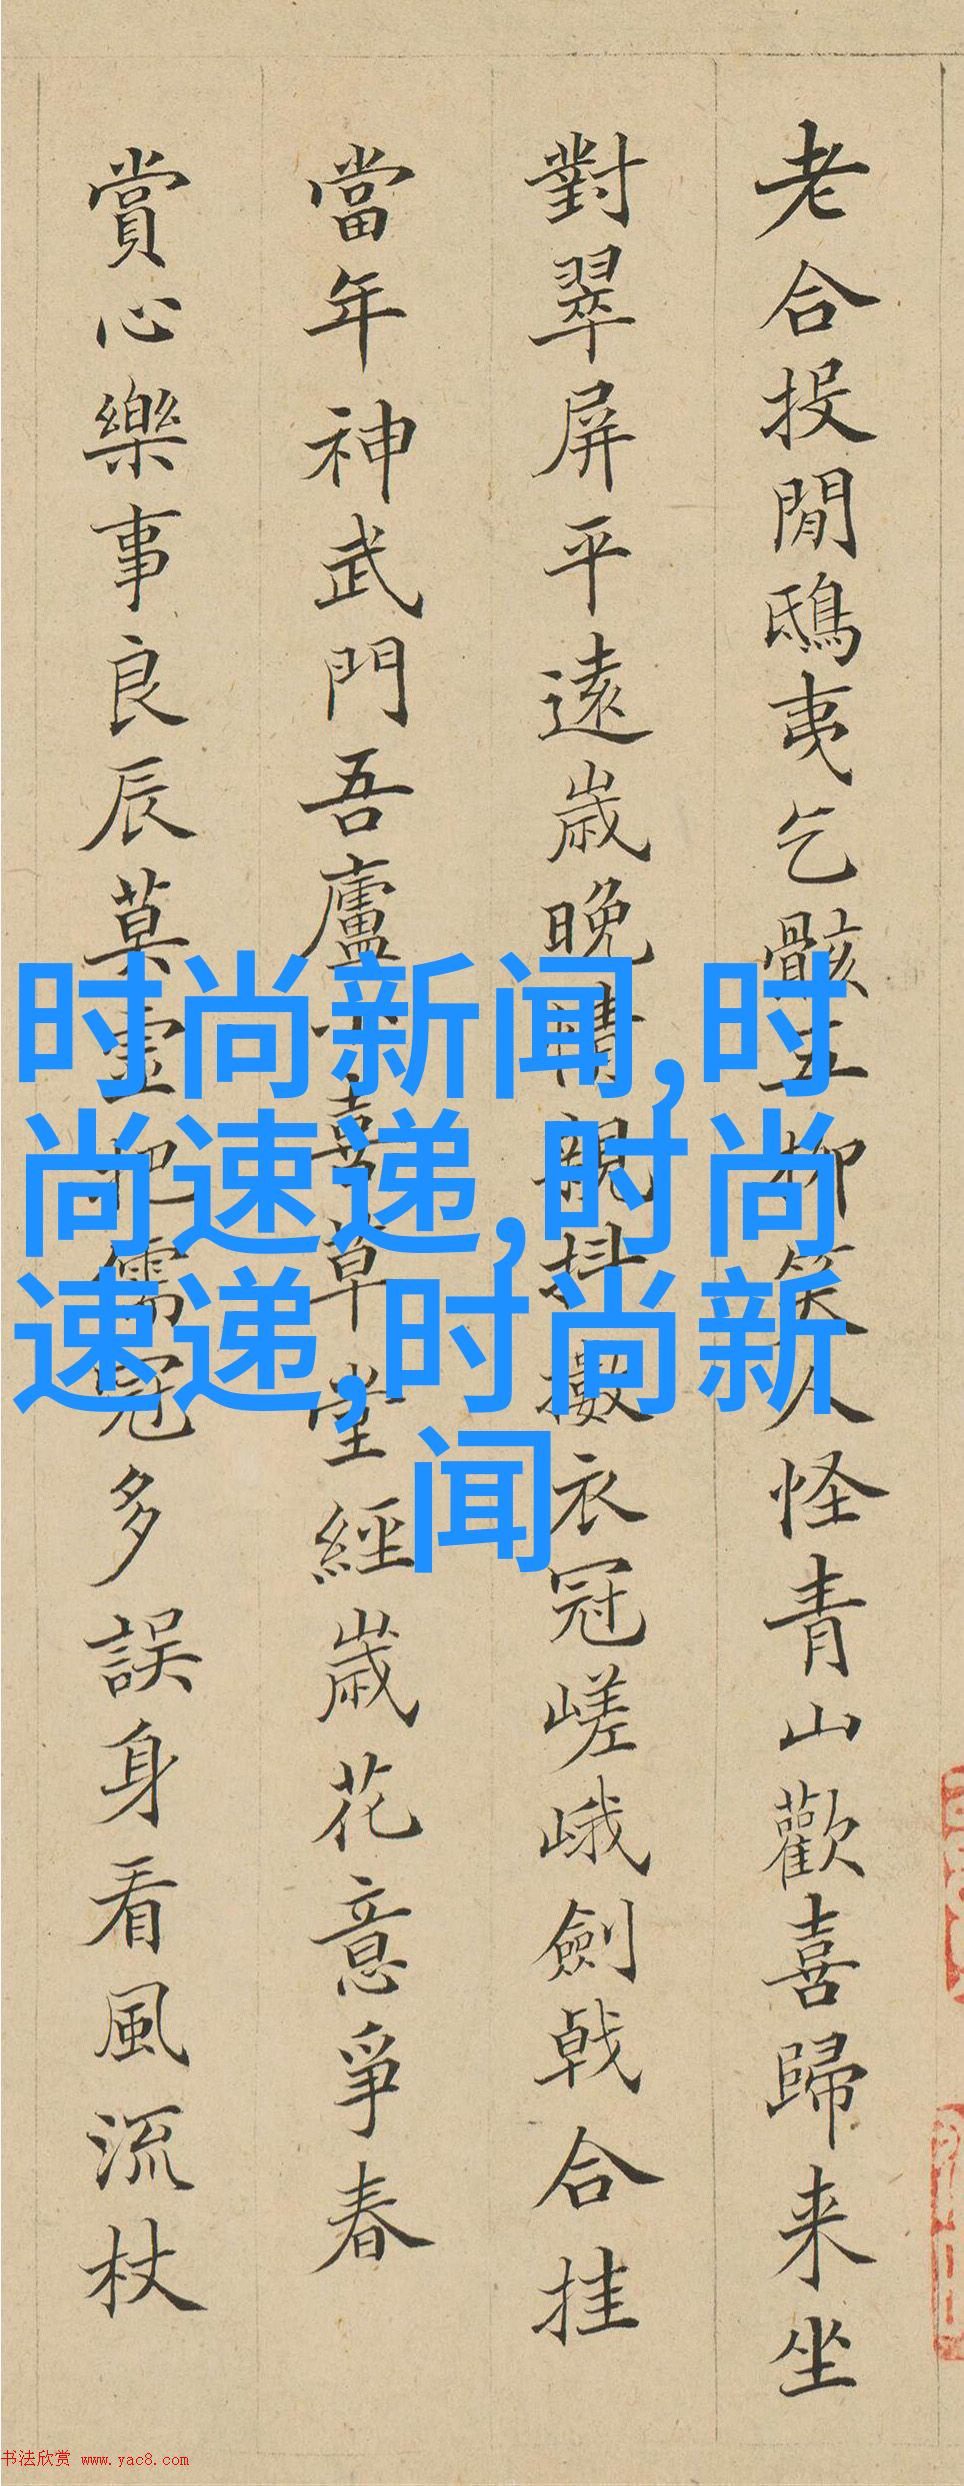 老合投閒鴟夷乞骸五柳笑人怪青山歡喜歸来坐
對翠屏平遠歲晚情親抖擻衣冠嵯峨劍戟合挂
當年神武門吾廬喜草堂經歲花意爭春
賞心樂事良辰莫把儒冠多誤身看風流杖
时尚新闻,时
尚速递,时尚
速递,时尚新
闻
书法欣赏 www.yac8.com